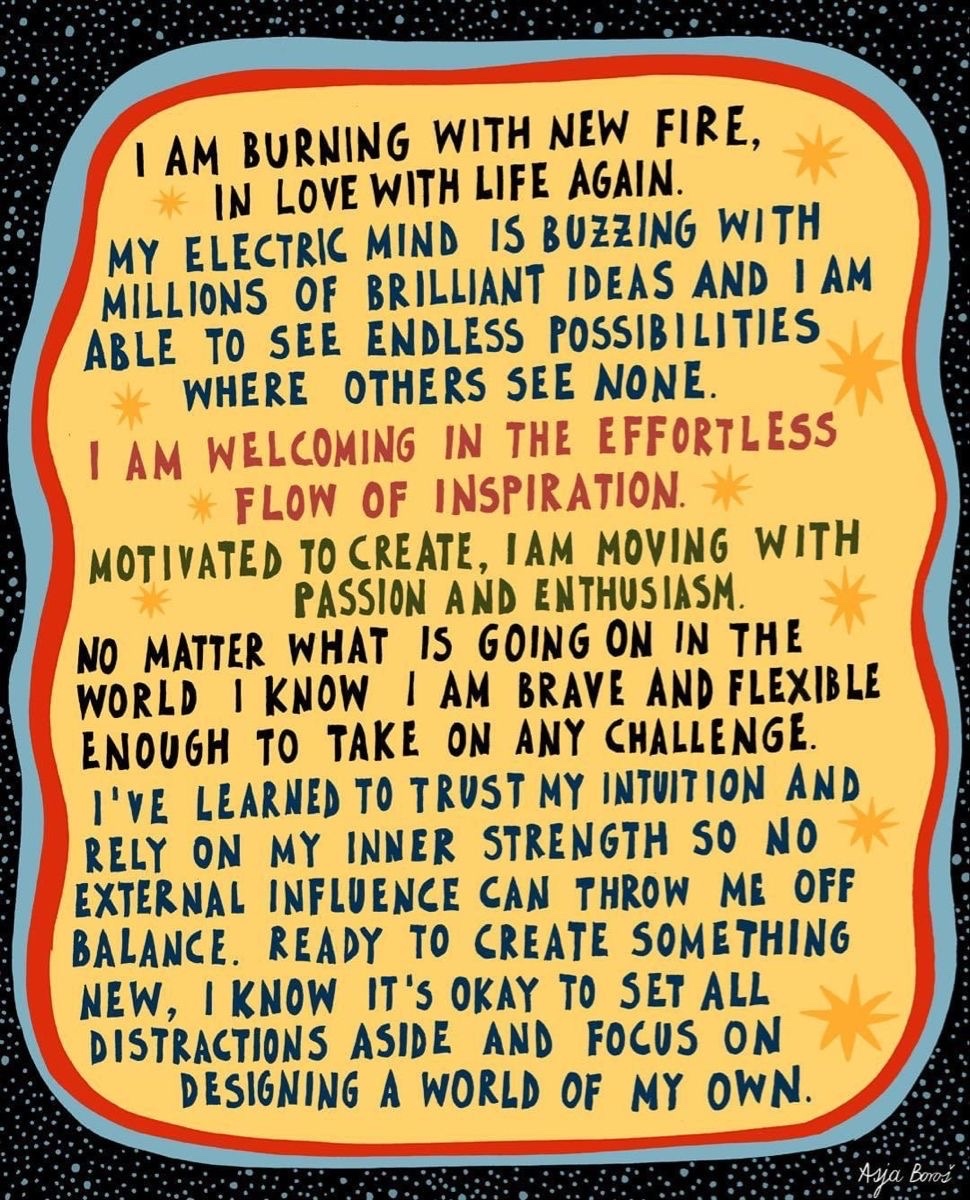 I AM BURNING WITH NEW FIRE,
IN LOVE WITH LIFE AGAIN.
MY ELECTRIC MIND IS BUZZING WITH
MILLIONS OF BRILLIANT IDEAS AND I AM
ABLE TO SEE ENDLESS POSSIBILITIES
WHERE OTHERS SEE NONE.
I AM WELCOMING IN THE EFFORTLESS
FLOW OF INSPIRATION.
MOTIVATED TO CREATE, I AM MOVING WITH
PASSION AND ENTHUSIASM.
NO MATTER WHAT IS GOING ON IN THE
WORLD I KNOW I AM BRAVE AND FLEXIBLE
ENOUGH TO TAKE ON ANY CHALLENGE.
I'VE LEARNED TO TRUST MY INTUITION AND
RELY ON MY INNER STRENGTH SO NO
EXTERNAL INFLUENCE CAN THROW ME OFF
BALANCE. READY TO CREATE SOMETHING
NEW, I KNOW IT'S OKAY TO SET ALL
DISTRACTIONS ASIDE AND FOCUS ON
DESIGNING A WORLD OF MY OWN.
Asja Boroš